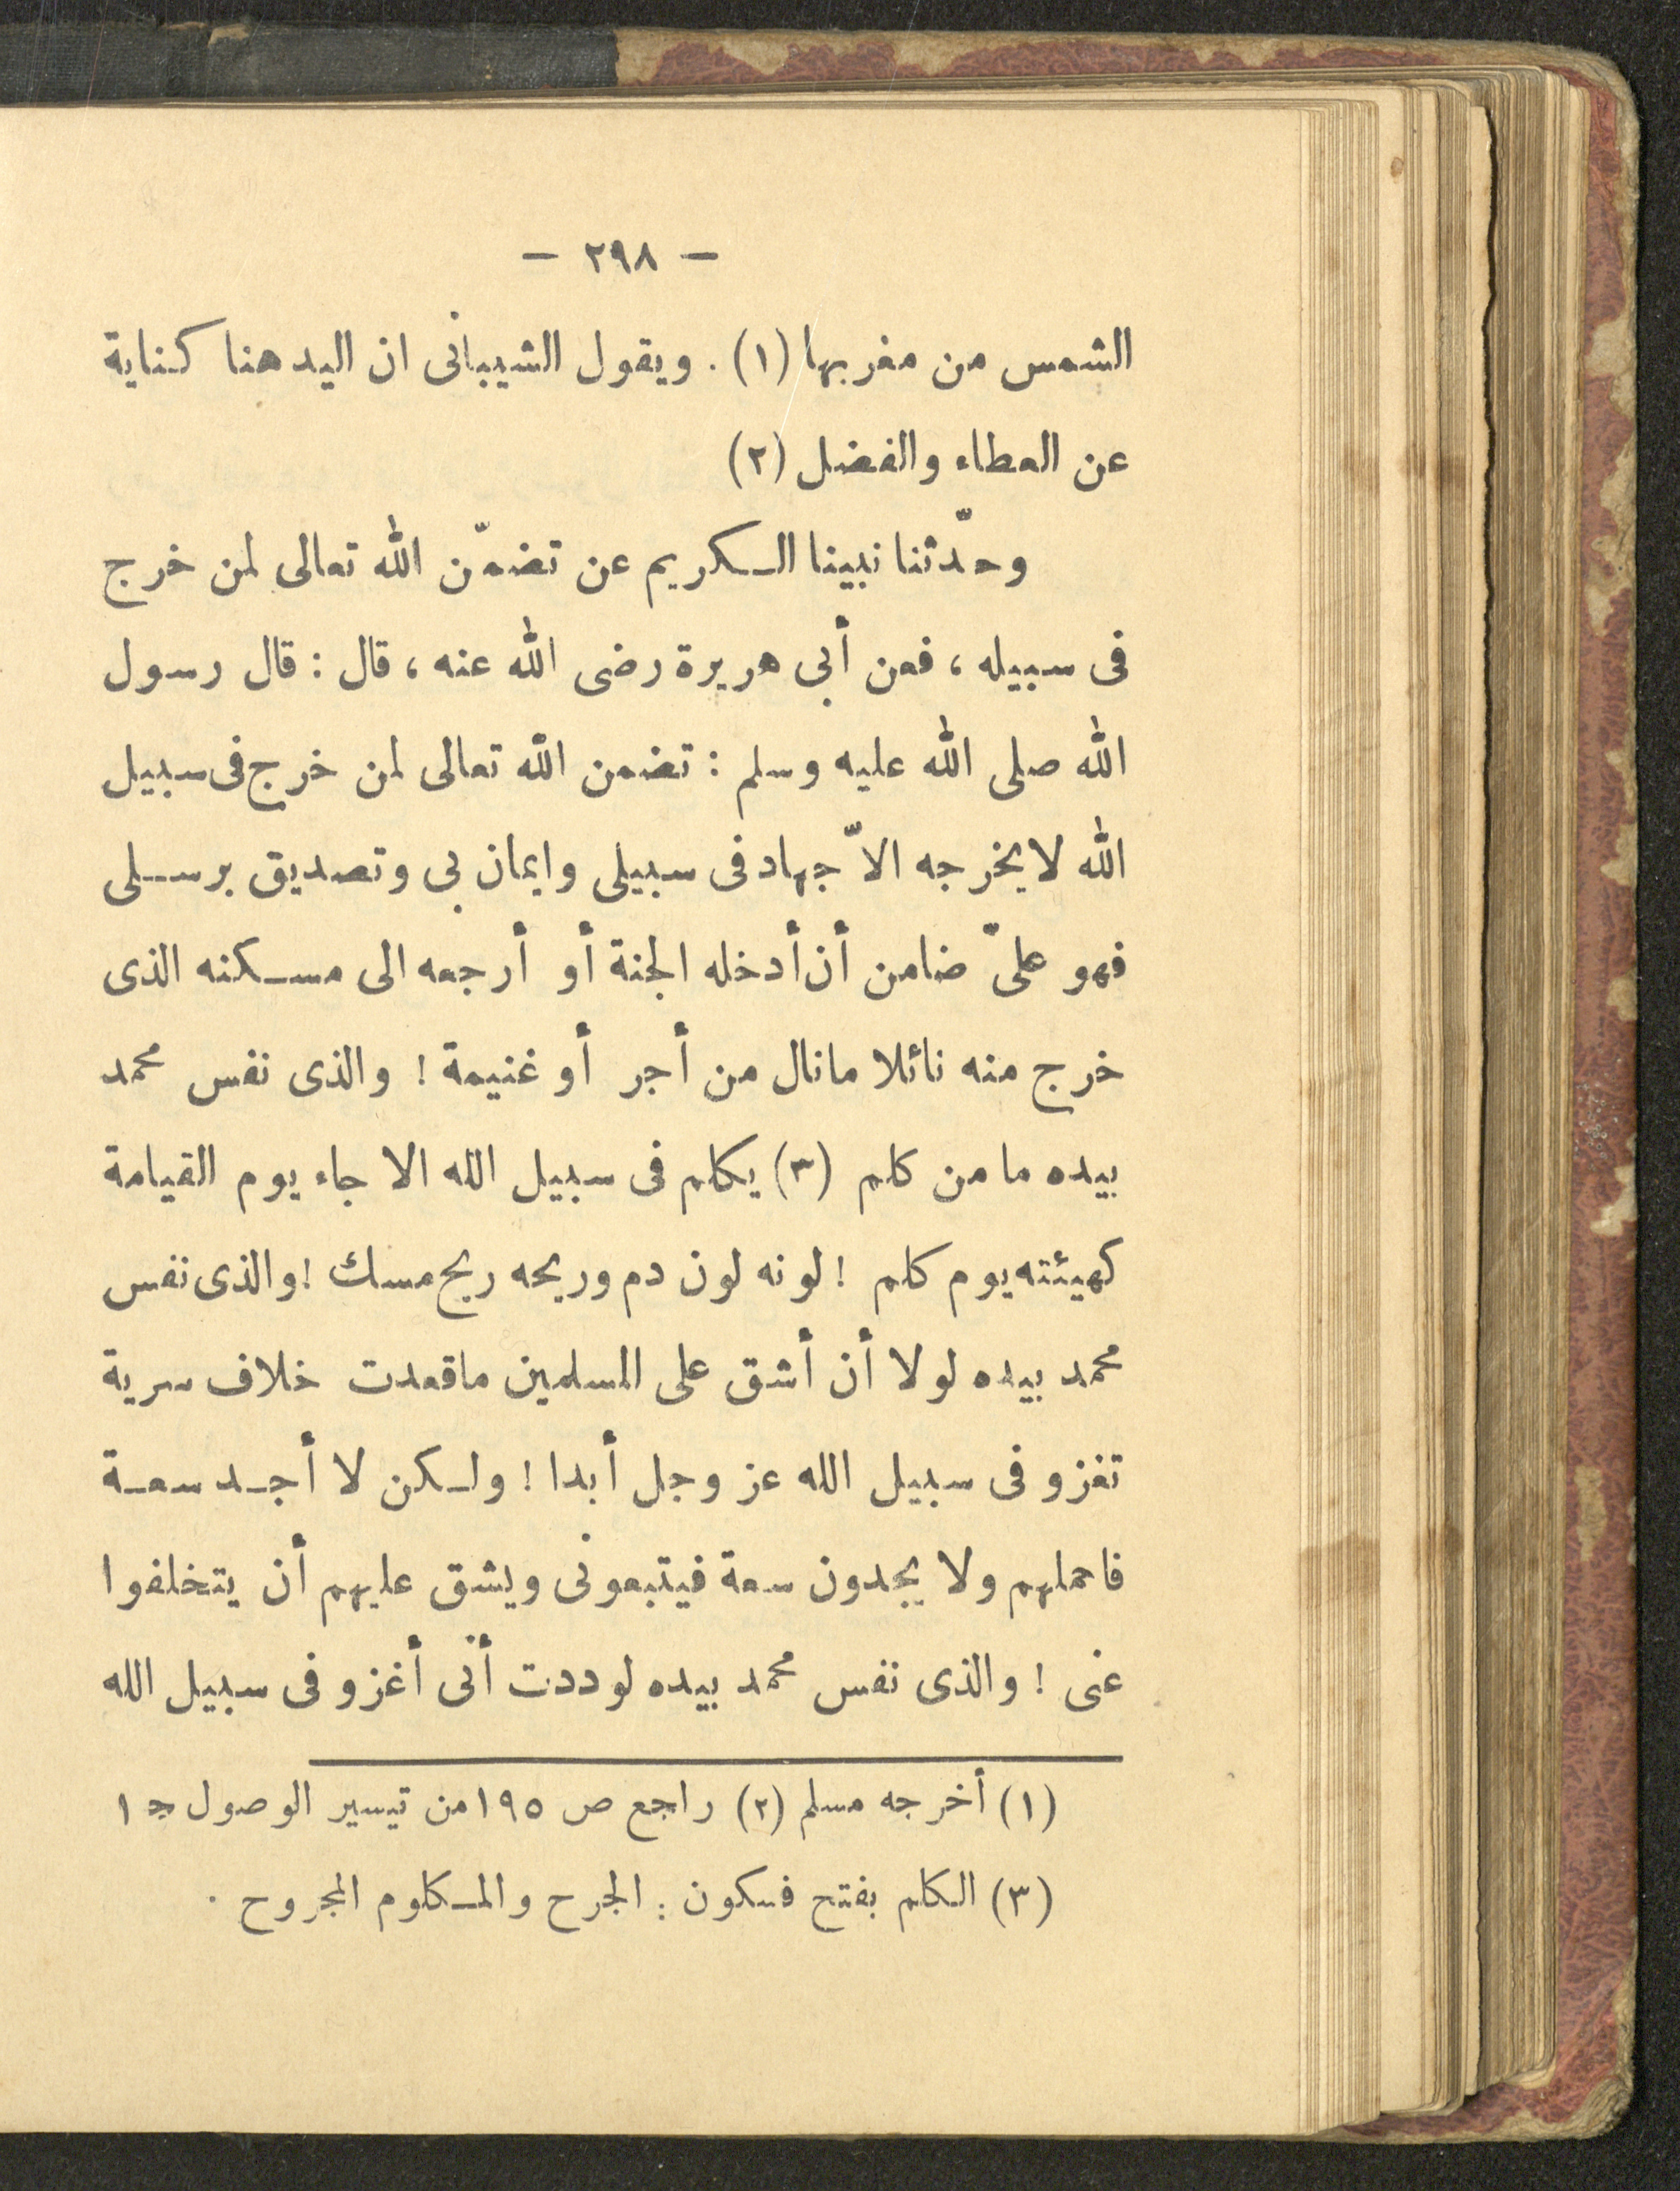 — ٢٩٨ —
الشمس من مغربها (١) . ويقول الشيبانى ان اليد هنا كناية
عن العطاء والفضل (٢)
وحدّثنا نبينا الكريم عن تضمّن الله تعالى لمن خرج
فى سبيله ، فعن أبى هريرة رضى الله عنه ، قال : قال رسول
الله صلى الله عليه وسلم : تضمن الله تعالى لمن خرج فى سبيل
الله لا يخرجه الاّ جهاد فى سبيلى وايمان بى وتصديق برسلى
فهو علىّ ضامن أن أدخله الجنة أو أرجعه الى مسكنه الذى
خرج منه نائلا مانال من أجر أو غنيمة ! والذى نفس محمد
بيده ما من كلم (٣) يكلم فى سبيل الله الا جاء يوم القيامة
كهيئته يوم كلم ! لونه لون دم وريحه ريح مسك ! والذى نفس
محمد بيده لولا أن أشق على المسلمين ماقعدت خلاف سرية
تغزو فى سبيل الله عز وجل أبدا ! ولكن لا أجد سعة
فاحملهم ولا يجدون سعة فيتبعونى ويشق عليهم أن يتخلفوا
عنى ! والذى نفس محمد بيده لوددت أنى أغزو فى سبيل الله
(١) أخرجه مسلم (٢) راجع ص ١٩٥ من تيسير الوصول ج ١
(٣) الكلم بفتح فسكون : الجرح والمكلوم المجروح .